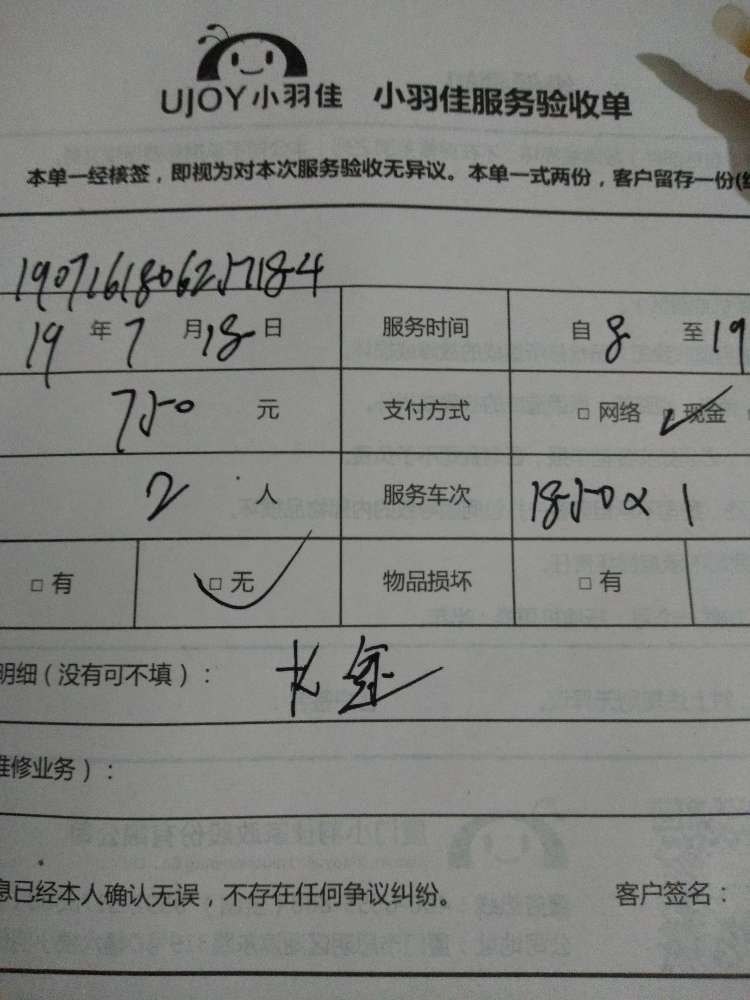 UJOY小羽佳 小羽佳服务验收单
本单一经核签，即视为对本次服务验收无异议。本单一式两份，客户留存一份
1907161806257184
19年7月18日 服务时间 自8至19
750元 支付方式 □网络 □现金
2人 服务车次 1850×1
□有 □无 物品损坏 □有
明细（没有可不填）：
修业务）：
息已经本人确认无误，不存在任何争议纠纷。 客户签名：